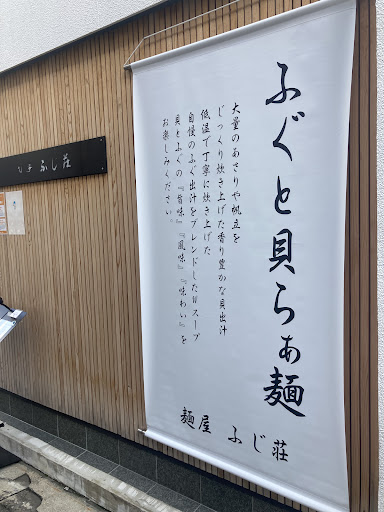 ふぐと貝らぁ麺
大量のあさりや帆立を
じっくり炊き上げた香り豊かな貝出汁
低温で丁寧に炊き上げた
自慢のふぐ出汁をブレンドしたWスープ
貝とふぐの『旨味』『風味』『味わい』を
お楽しみください。
麺屋 ふじ荘
ふじ荘